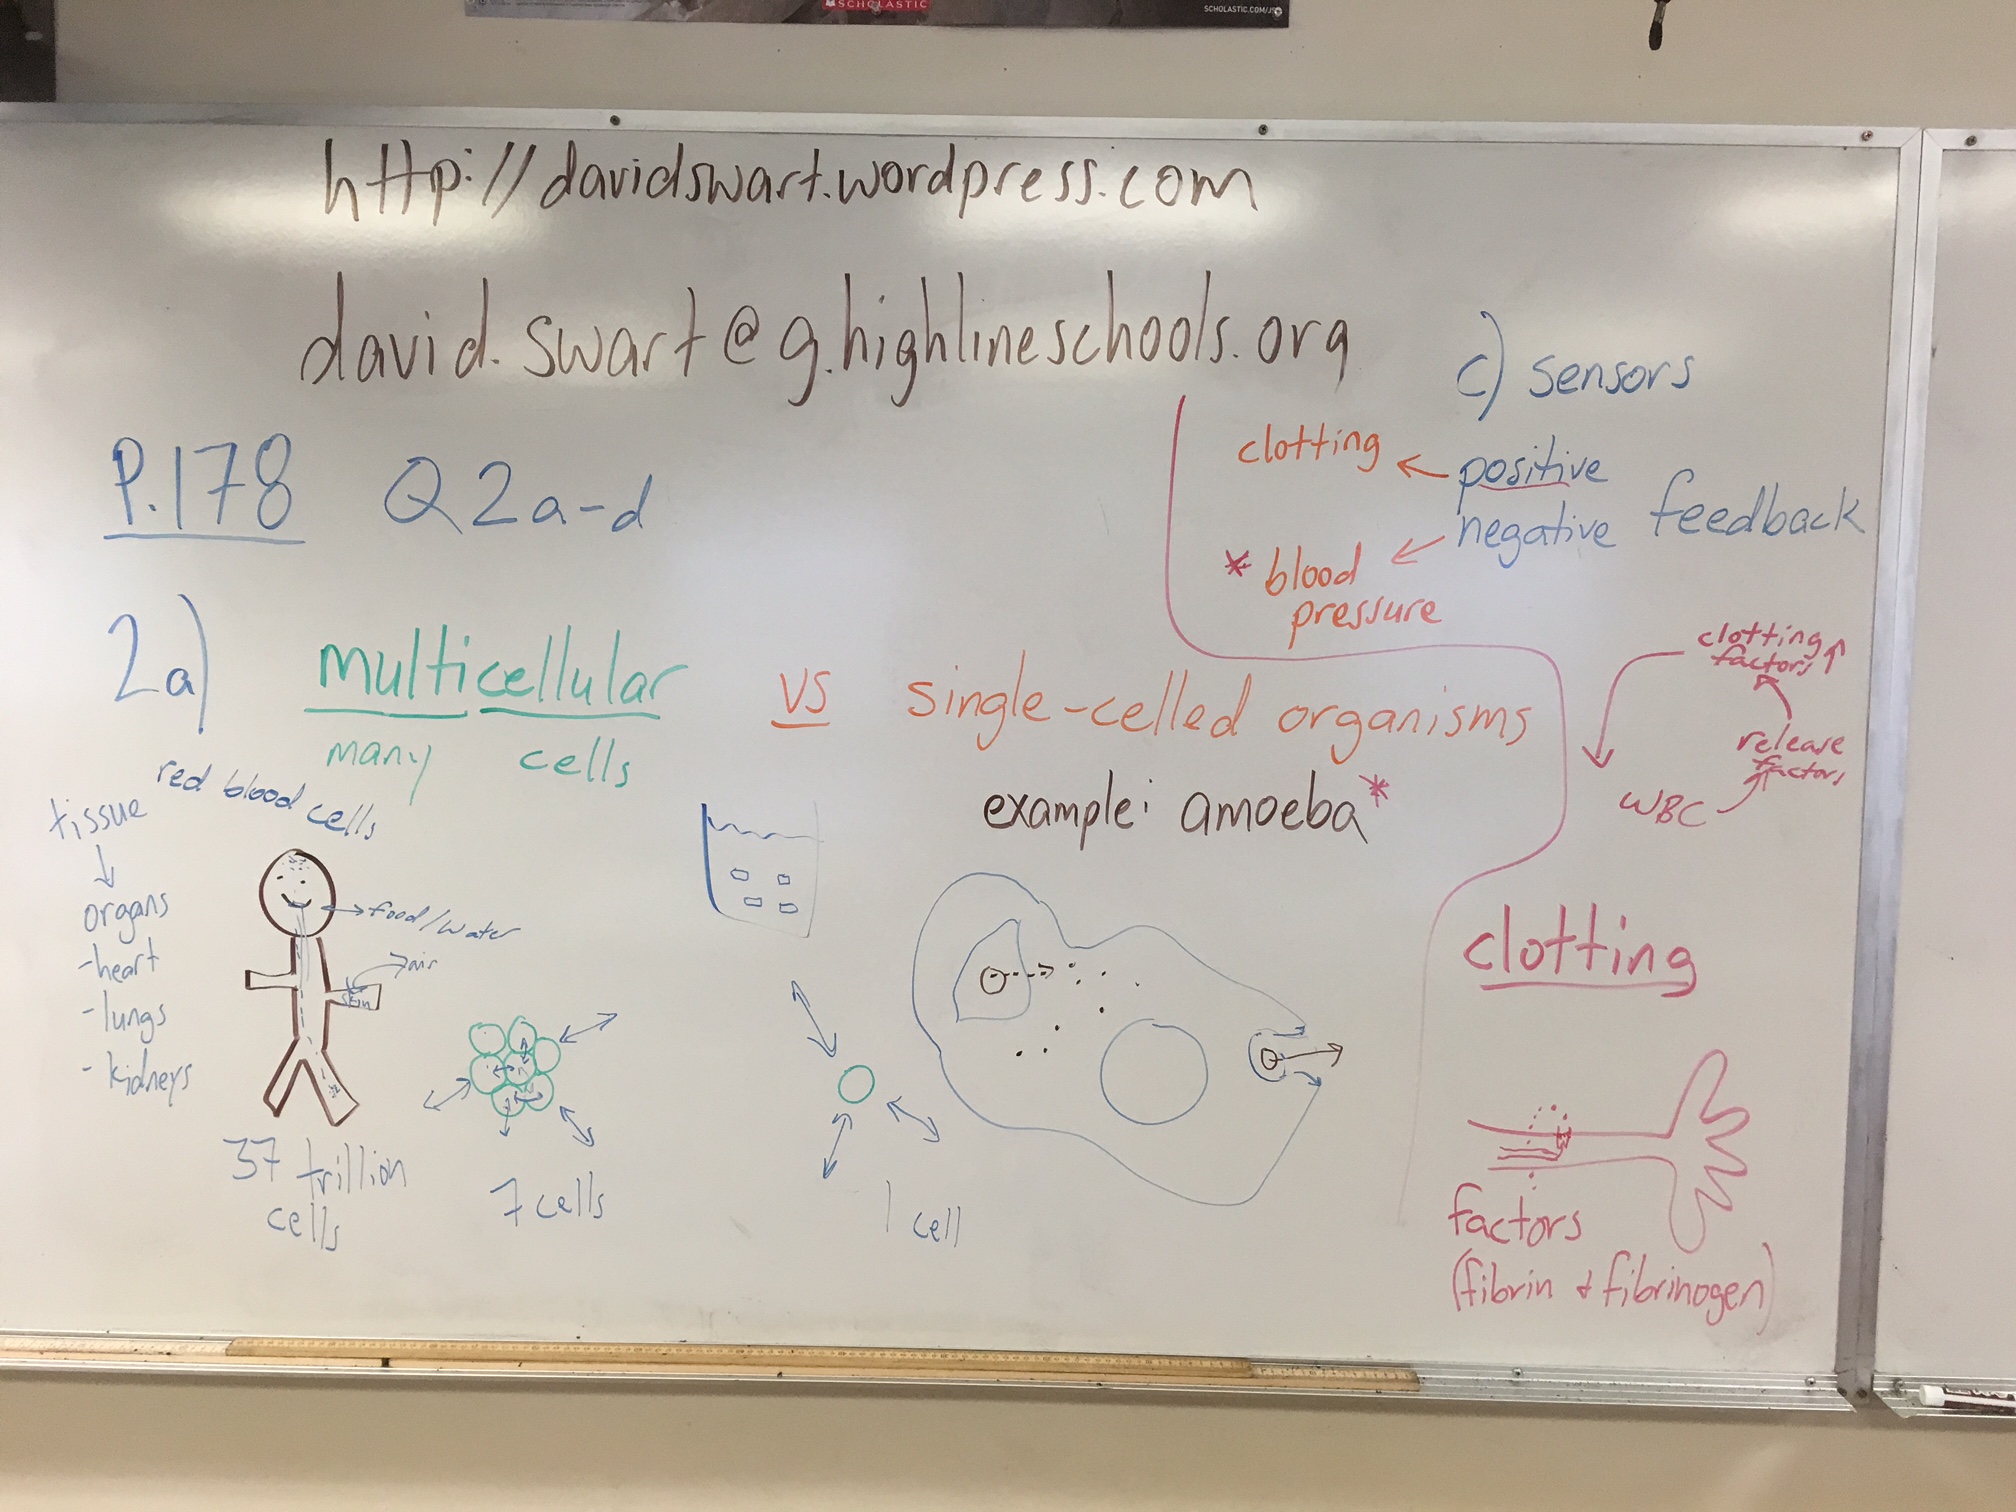 SCHOLASTIC
SCHOLASTIC.COM/JS
http://davidswart.wordpress.com
david.swart@g.highlineschools.org
c) sensors
clotting ← positive
negative feedback
* blood
pressure
P.178 Q2a-d
2a) multicellular vs single-celled organisms
many cells
example: amoeba*
red blood cells
tissue
↓
organs
-heart
-lungs
-kidneys
→food/water
air
skin
37 trillion
cells
7 cells
1 cell
clotting
factors↑
release
factors
WBC
clotting
factors
(fibrin & fibrinogen)